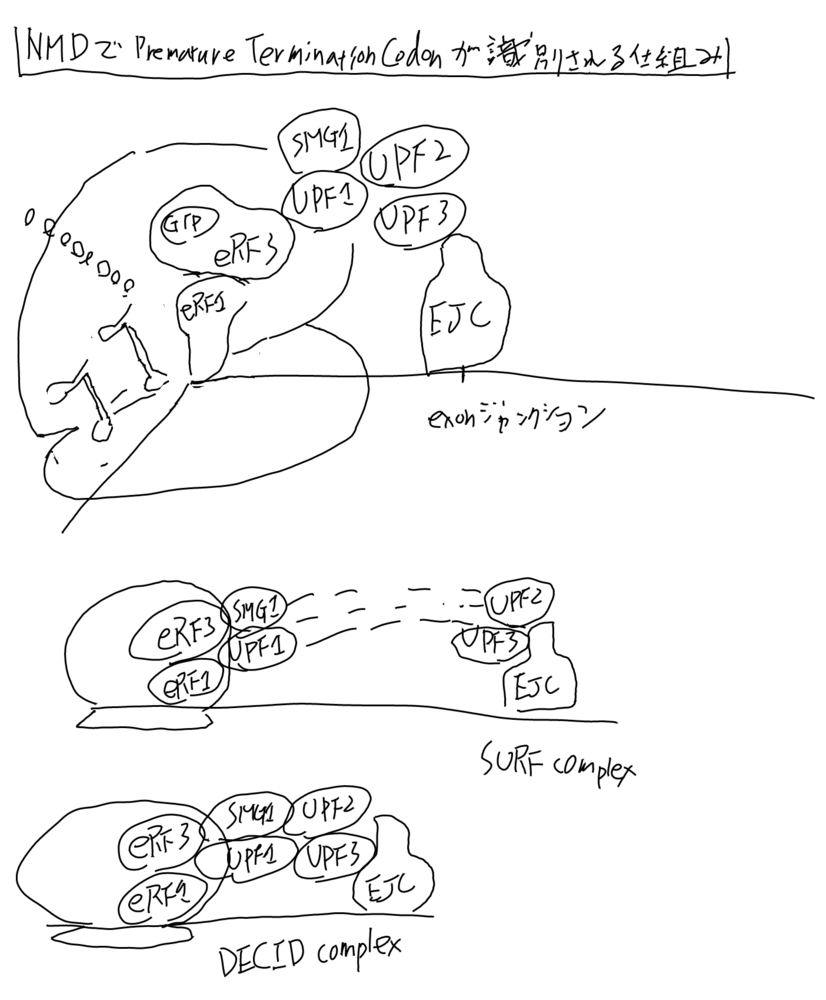 NMDで Premature Termination Codonが識別される仕組み
SMG1
UPF2
UPF1
UPF3
GTP
eRF3
eRF1
EJC
exonジャンクション
SMG1
UPF2
eRF3
UPF1
UPF3
eRF1
EJC
SURF complex
SMG1
UPF2
eRF3
UPF1
UPF3
EJC
eRF1
DECID complex